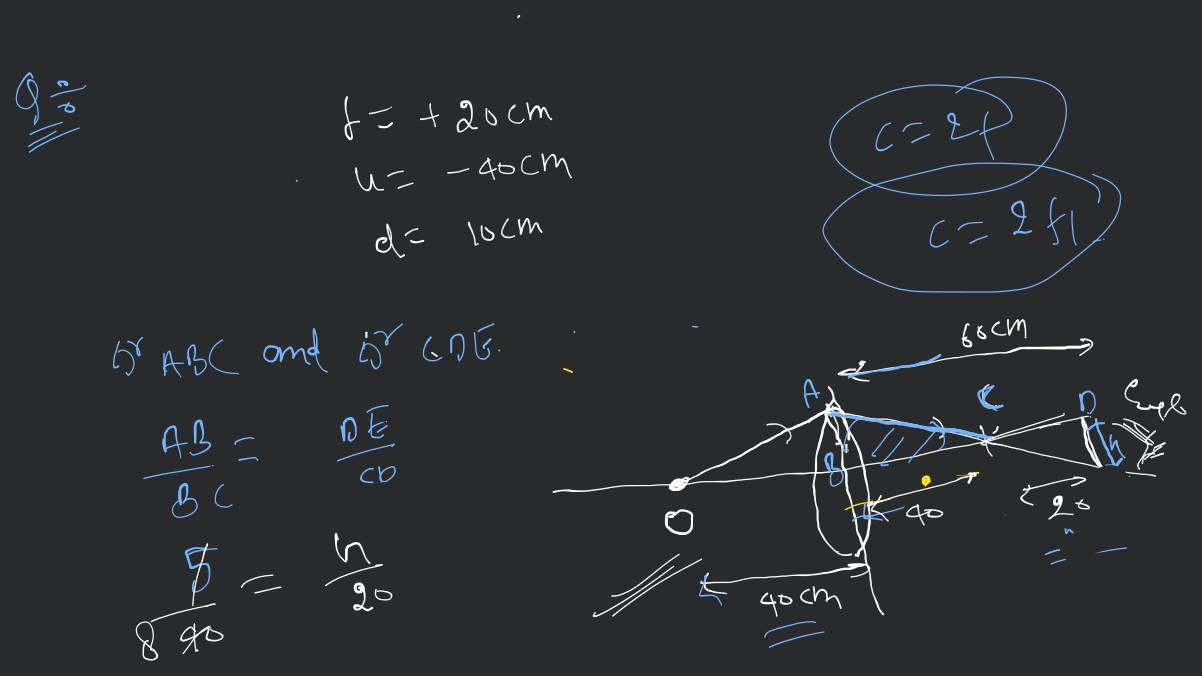 Q:
f = +20cm
u = -40cm
d = 10cm
c = 2f
c = 2f1
Δr ABC and Δr CDE.
AB/BC = DE/CD
5/40 = h/20
8
60cm
A
C
D
B
h
40
20
O
40cm